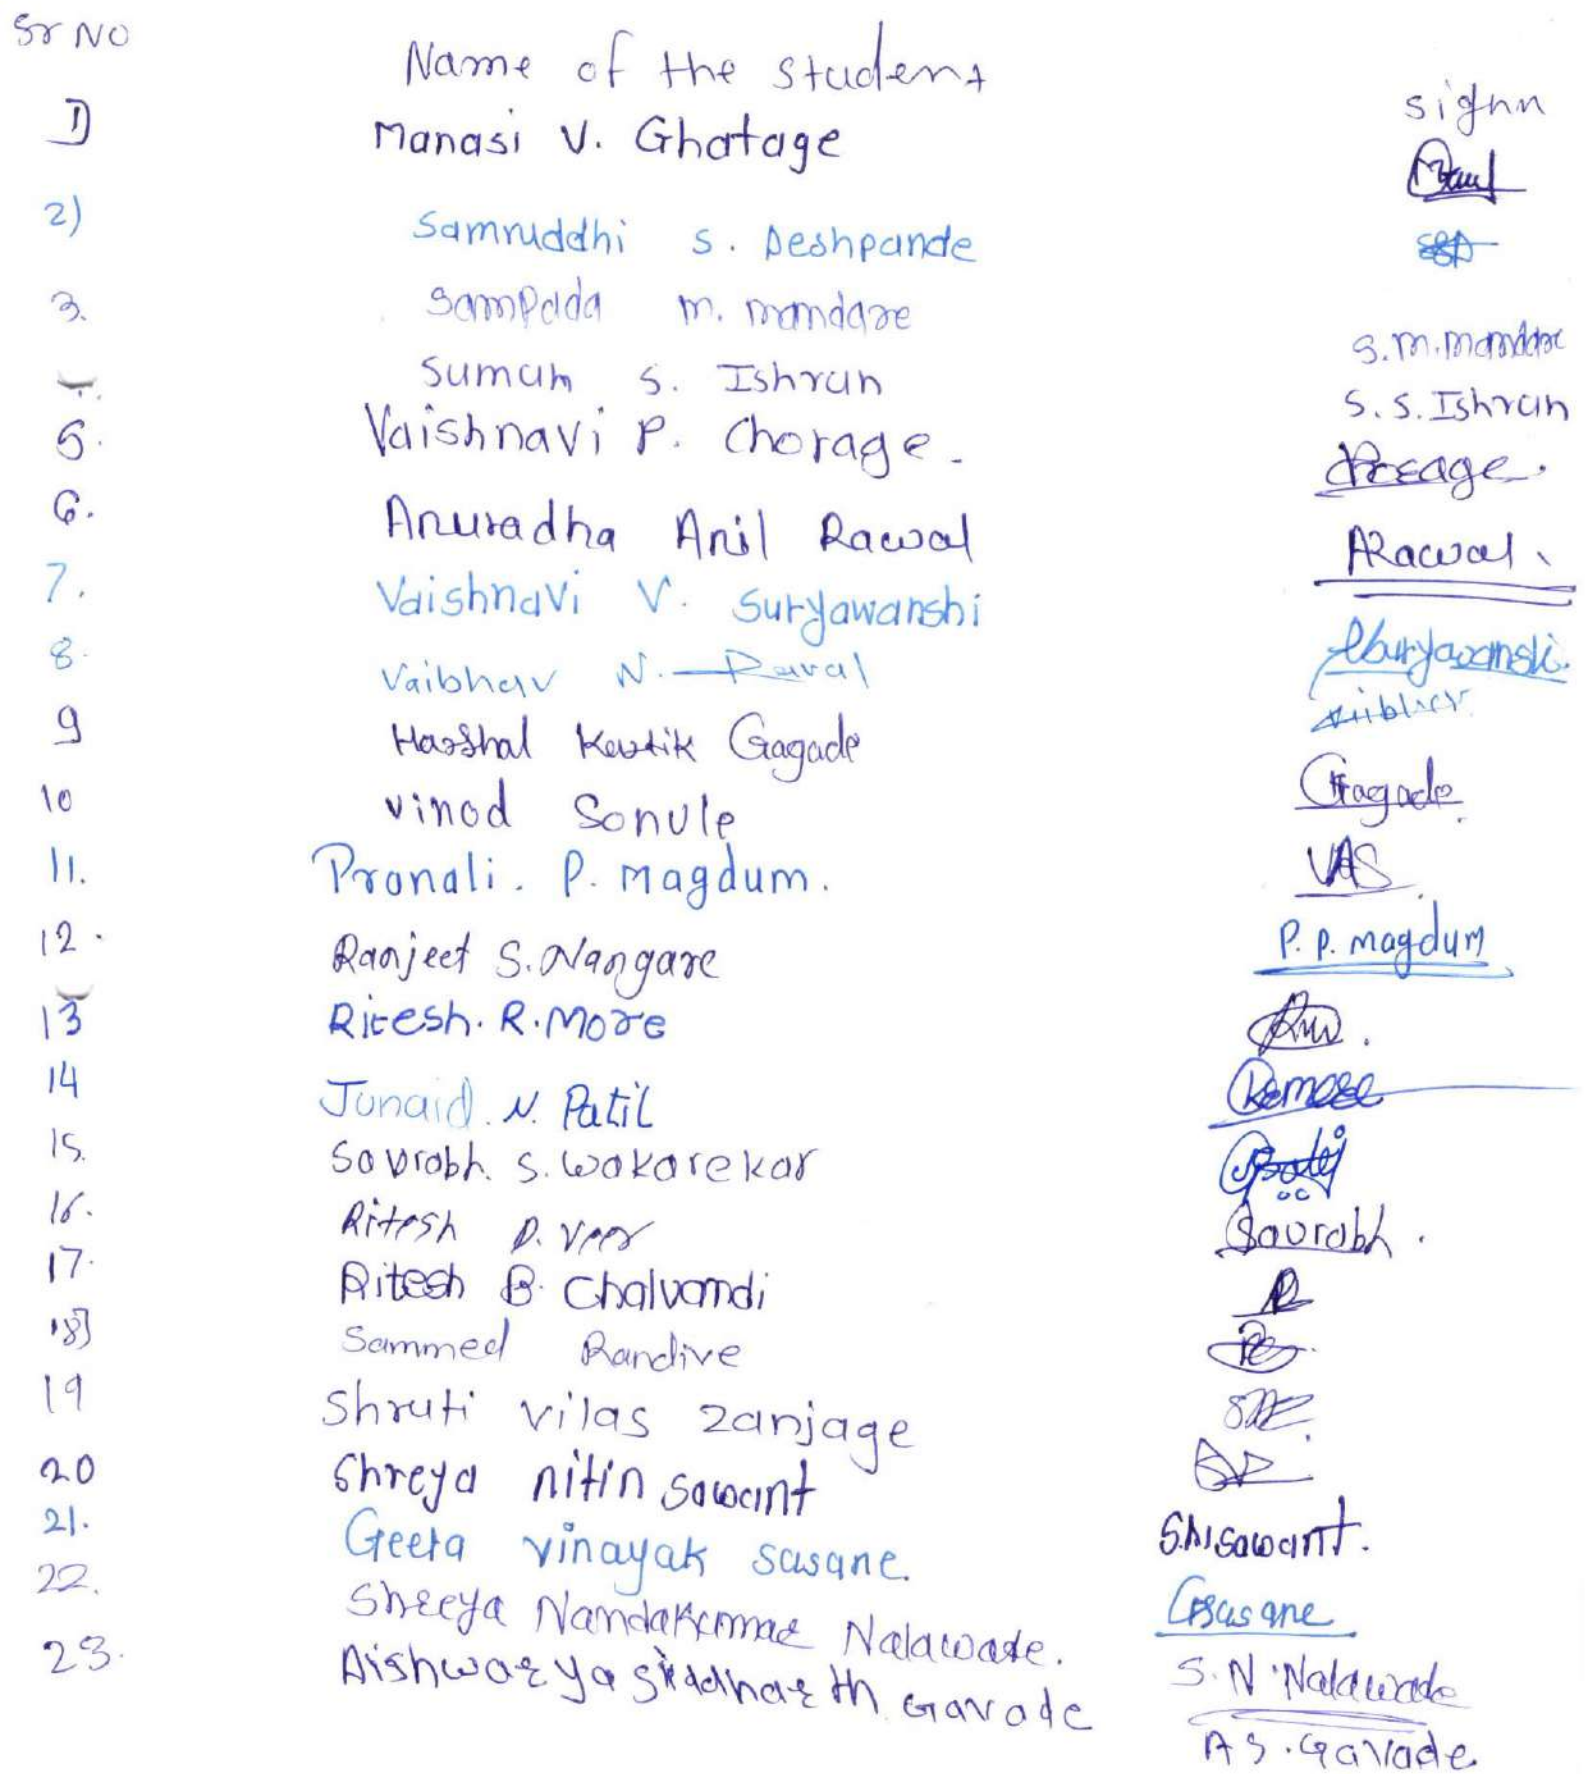 Sr NO Name of the student signn
1) Manasi V. Ghatage
2) Samruddhi S. Deshpande
3. Sampada m. mandare S.m.mandare
Suman S. Ishran S.S. Ishran
5. Vaishnavi P. Chorage.
6. Anuradha Anil Rawal ARawal.
7. Vaishnavi V. Suryawanshi
8. Vaibhav N. Raval
9 Harshal Kartik Gagade Gagade
10 Vinod Sonule VAS
11. Pronali. P. Magdum. P.P. magdum
12. Ranjeet S. Nangare
13 Ritesh. R. More
14 Junaid. N. Patil
15. Sourabh. S. Wakarekar Sourabh.
16. Ritesh D. Veer
17. Ritesh B. Chalvandi
18) Sammed Randive
19 Shruti vilas Zanjage
20 Shreya nitin sawant S.N sawant.
21. Geeta vinayak sasane. Gsasane
22. Shreeya Nandakumar Nalawade. S.N. Nalawade
23. Aishwarya Siddharth Gavade A S. Gavade